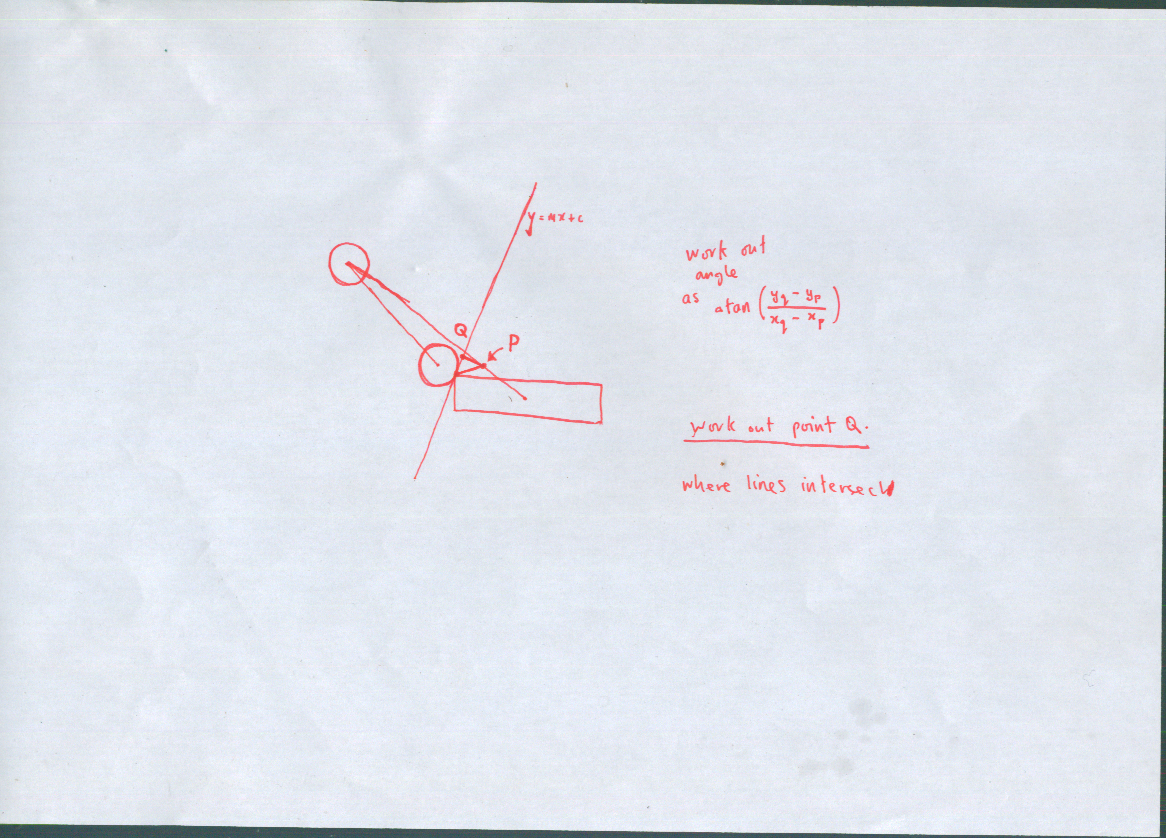 y = mx + c
work out
angle
as atan (yq - yp / xq - xp)
Q
P
work out point Q.
where lines intersect